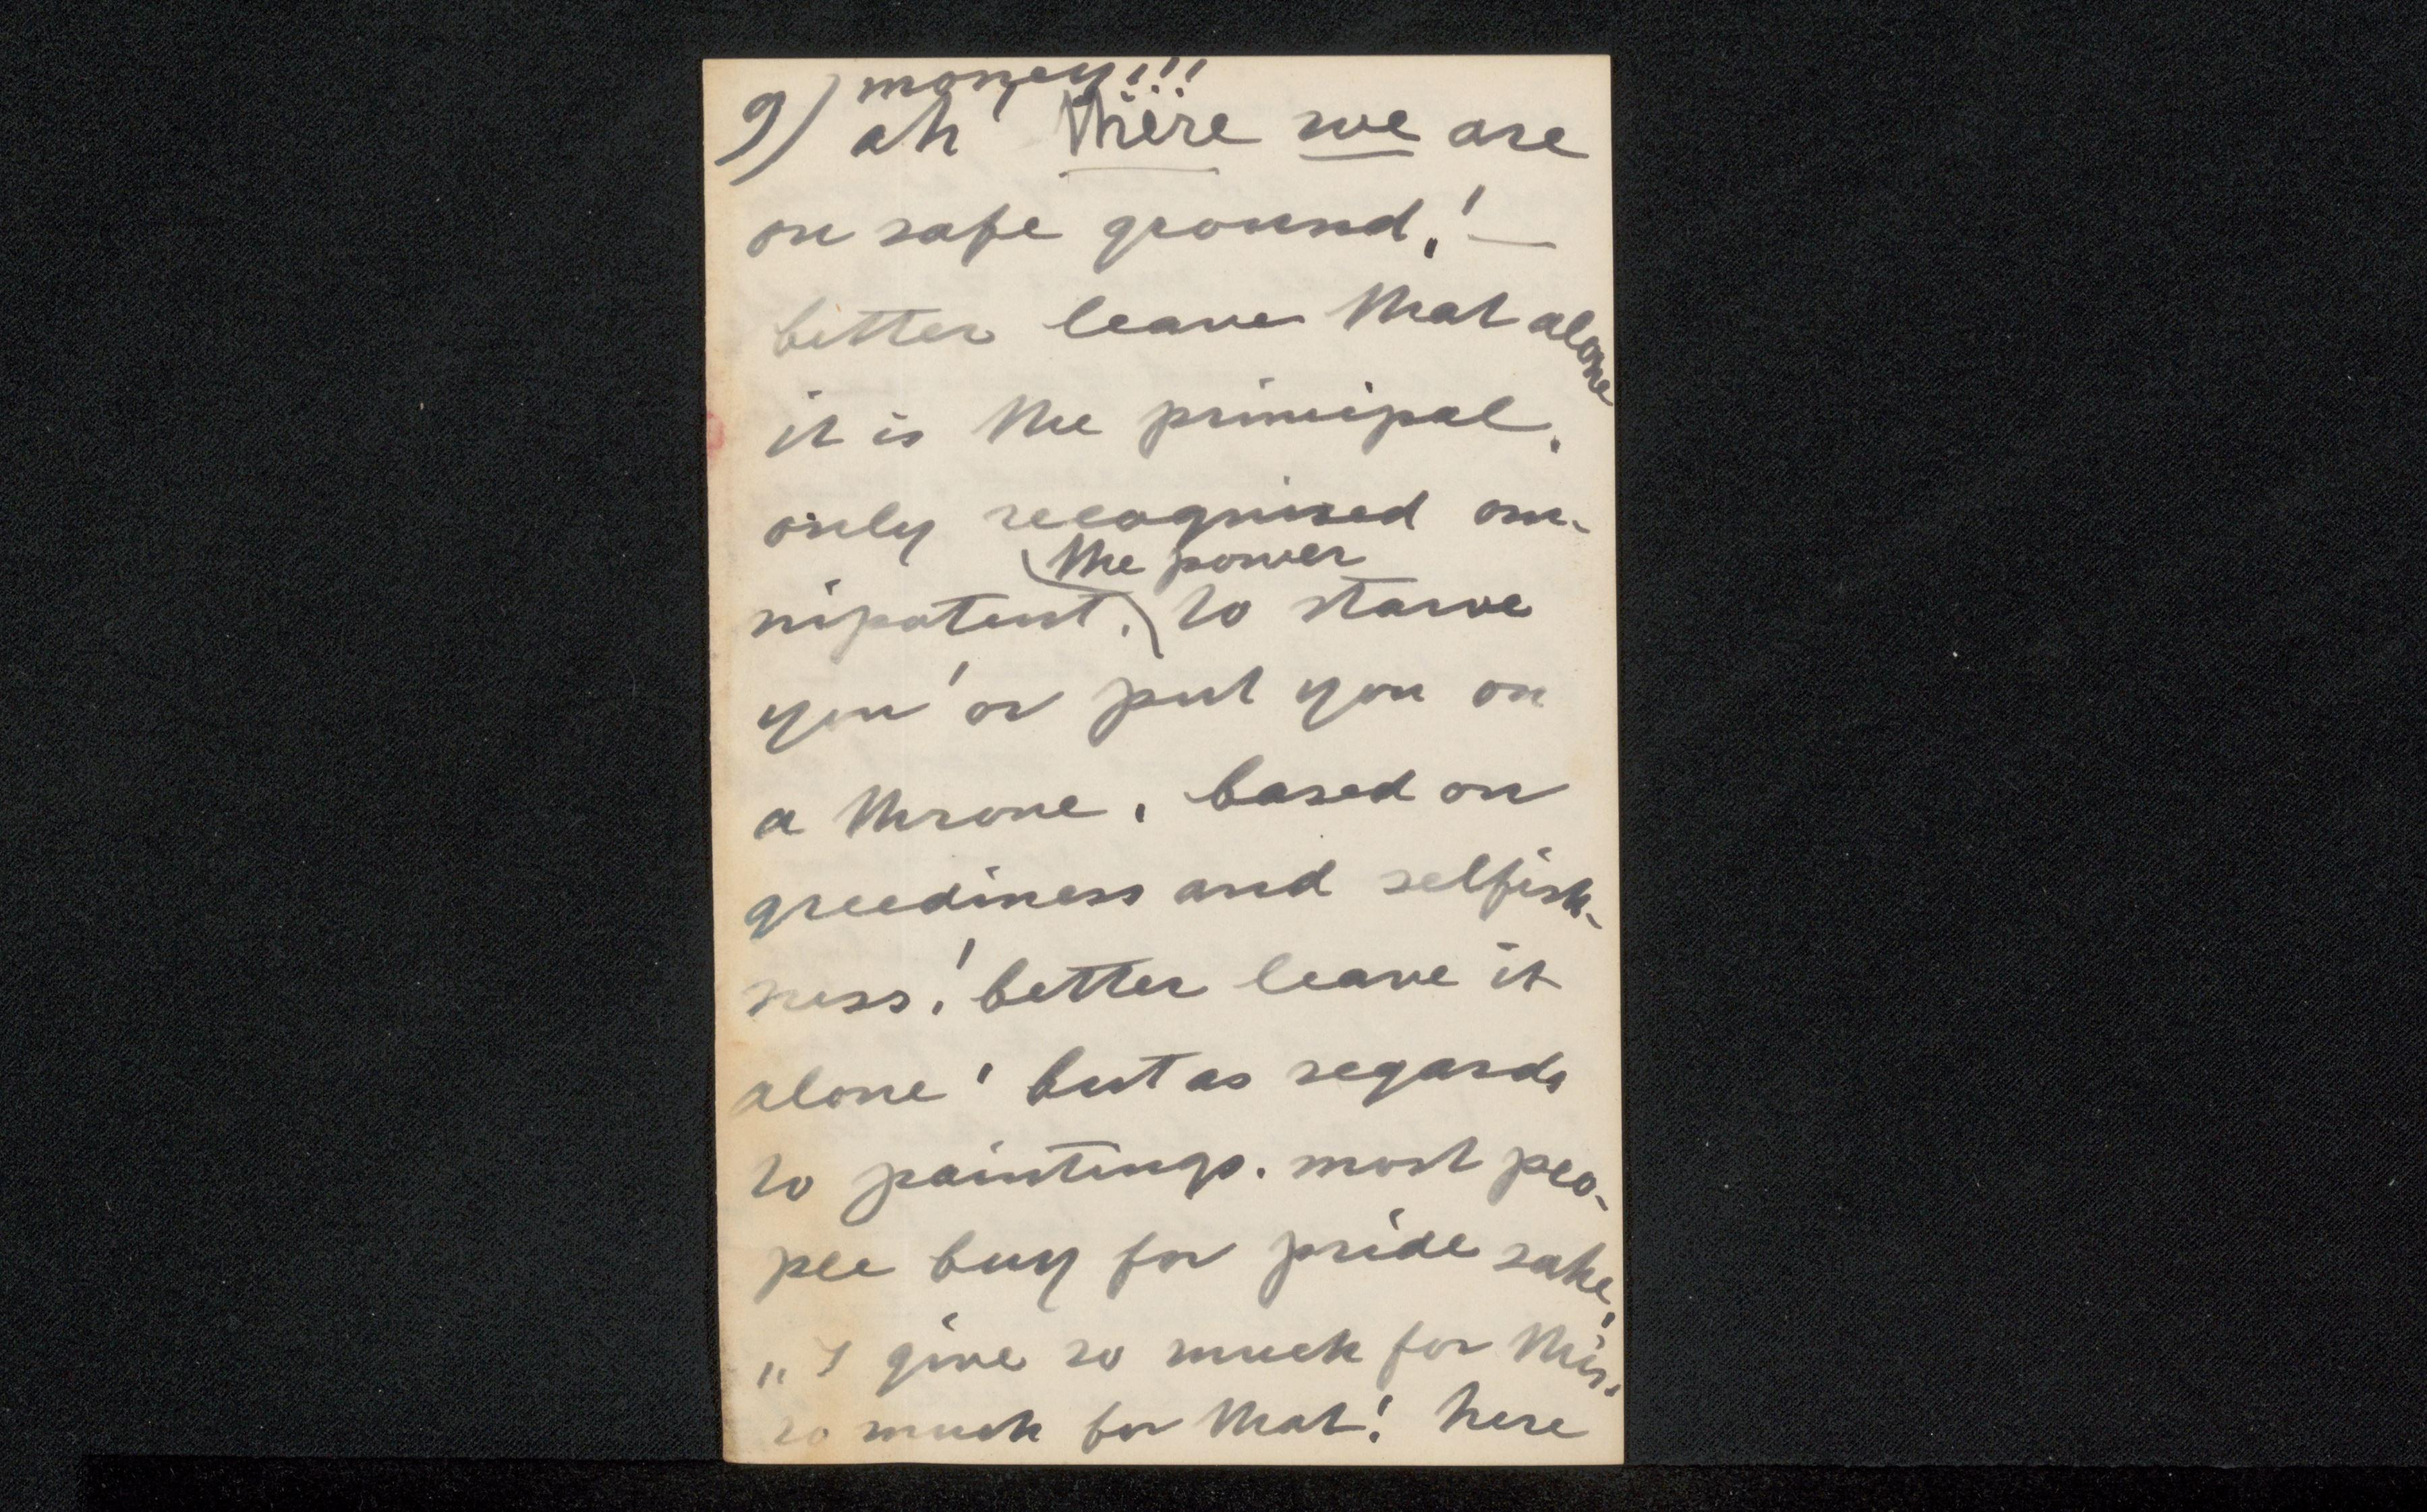 9) money!!!
ah! there we are
on safe ground! —
better leave that alone
it is the principal.
only recognised om-
the power
nipotent. to starve
you or put you on
a throne, based on
greediness and selfish-
ness! better leave it
alone! but as regards
to paintings. most peo-
ple buy for pride sake!
„I give so much for this,
so much for that! here